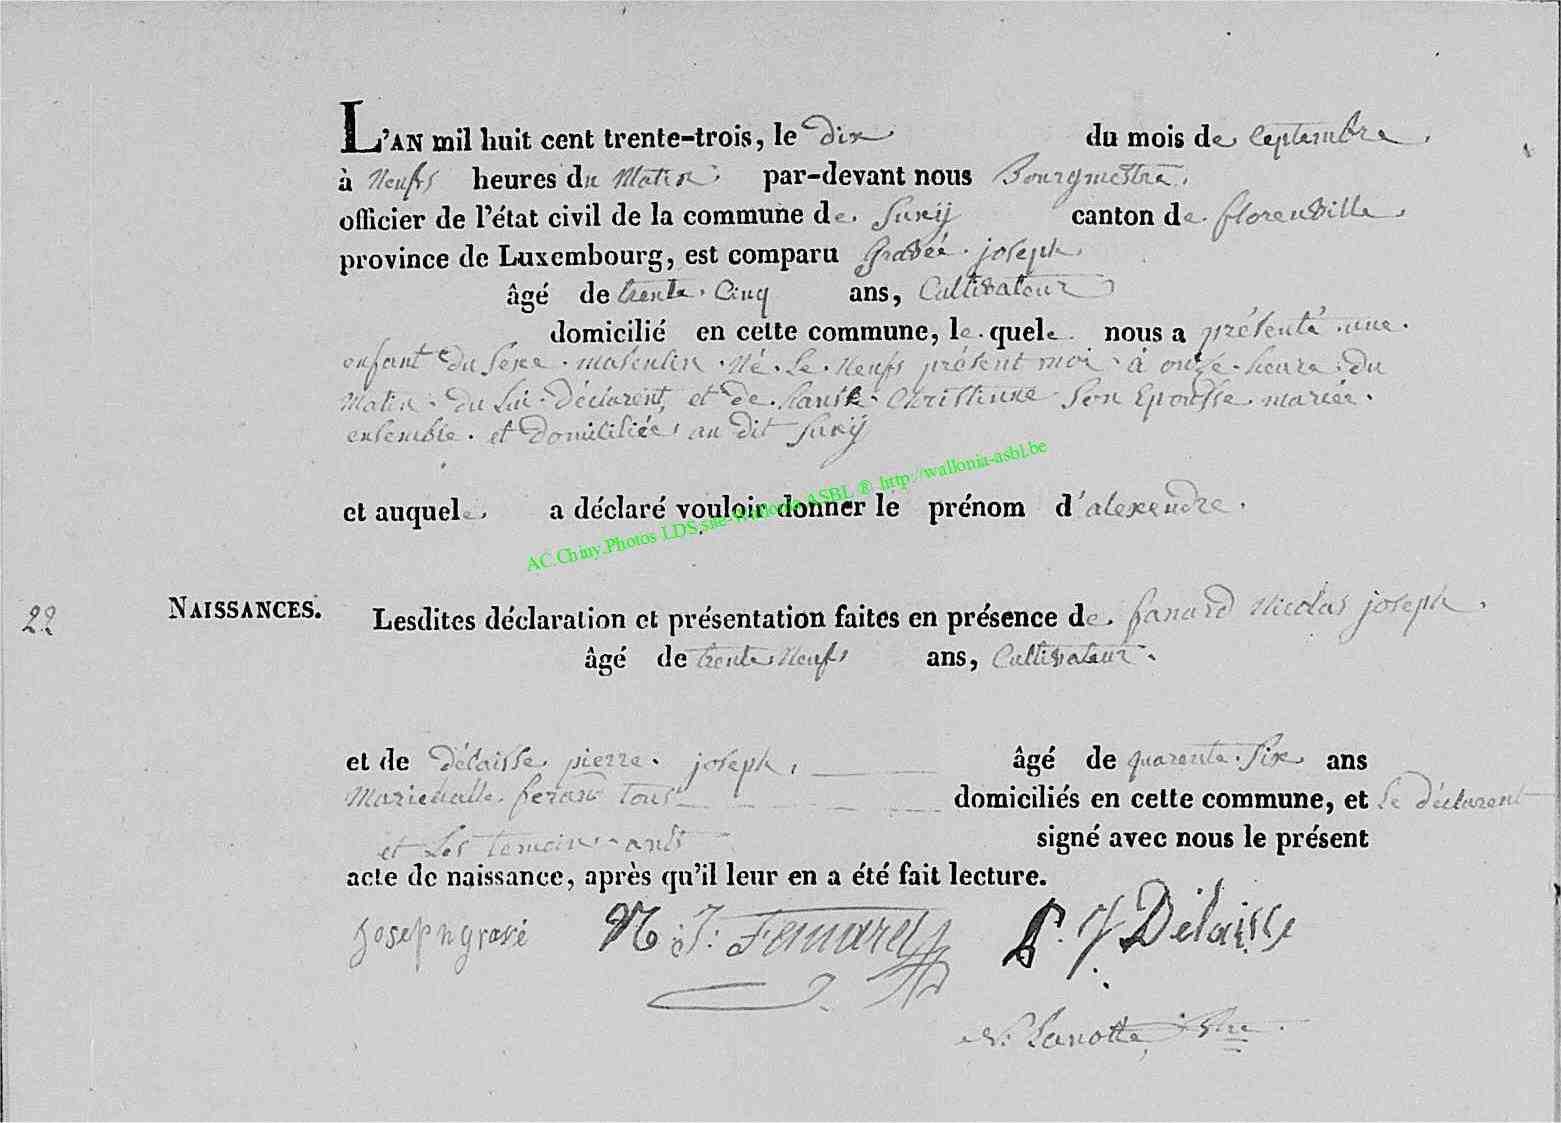 L'AN mil huit cent trente-trois, le dix du mois de Ceptembre.
à Neufs heures du Matin. par-devant nous Bourgmestre.
officier de l'état civil de la commune de Suxÿ canton de florenville.
province de Luxembourg, est comparu Gravée joseph.
âgé de trente. Cinq ans, Cultivateur
domicilié en cette commune, le quele nous a présenté une.
enfant du Sexe masculin Né Le Neufs présent moi à onze heure du
Matin du Lui Déclarent, et de Christienne Son Epousse mariée.
ensemble. et Domiciliée, au dit Suxÿ
et auquele a déclaré vouloir donner le prénom d'alexendre.
AC.Chiny.Photos LDS.site-Wallonia ASBL ® http://wallonia-asbl.be
22 NAISSANCES. Lesdites déclaration et présentation faites en présence de Nicolas joseph.
âgé de trente Neufs ans, Cultivateur.
et de Délaisse pierre joseph, âgé de quarente Six ans
Marichalle ferant tous domiciliés en cette commune, et Le déclarent
et Les temoins signé avec nous le présent
acte de naissance, après qu'il leur en a été fait lecture.
Joseph gravé N J: P. J. Délaisse
Lanotte